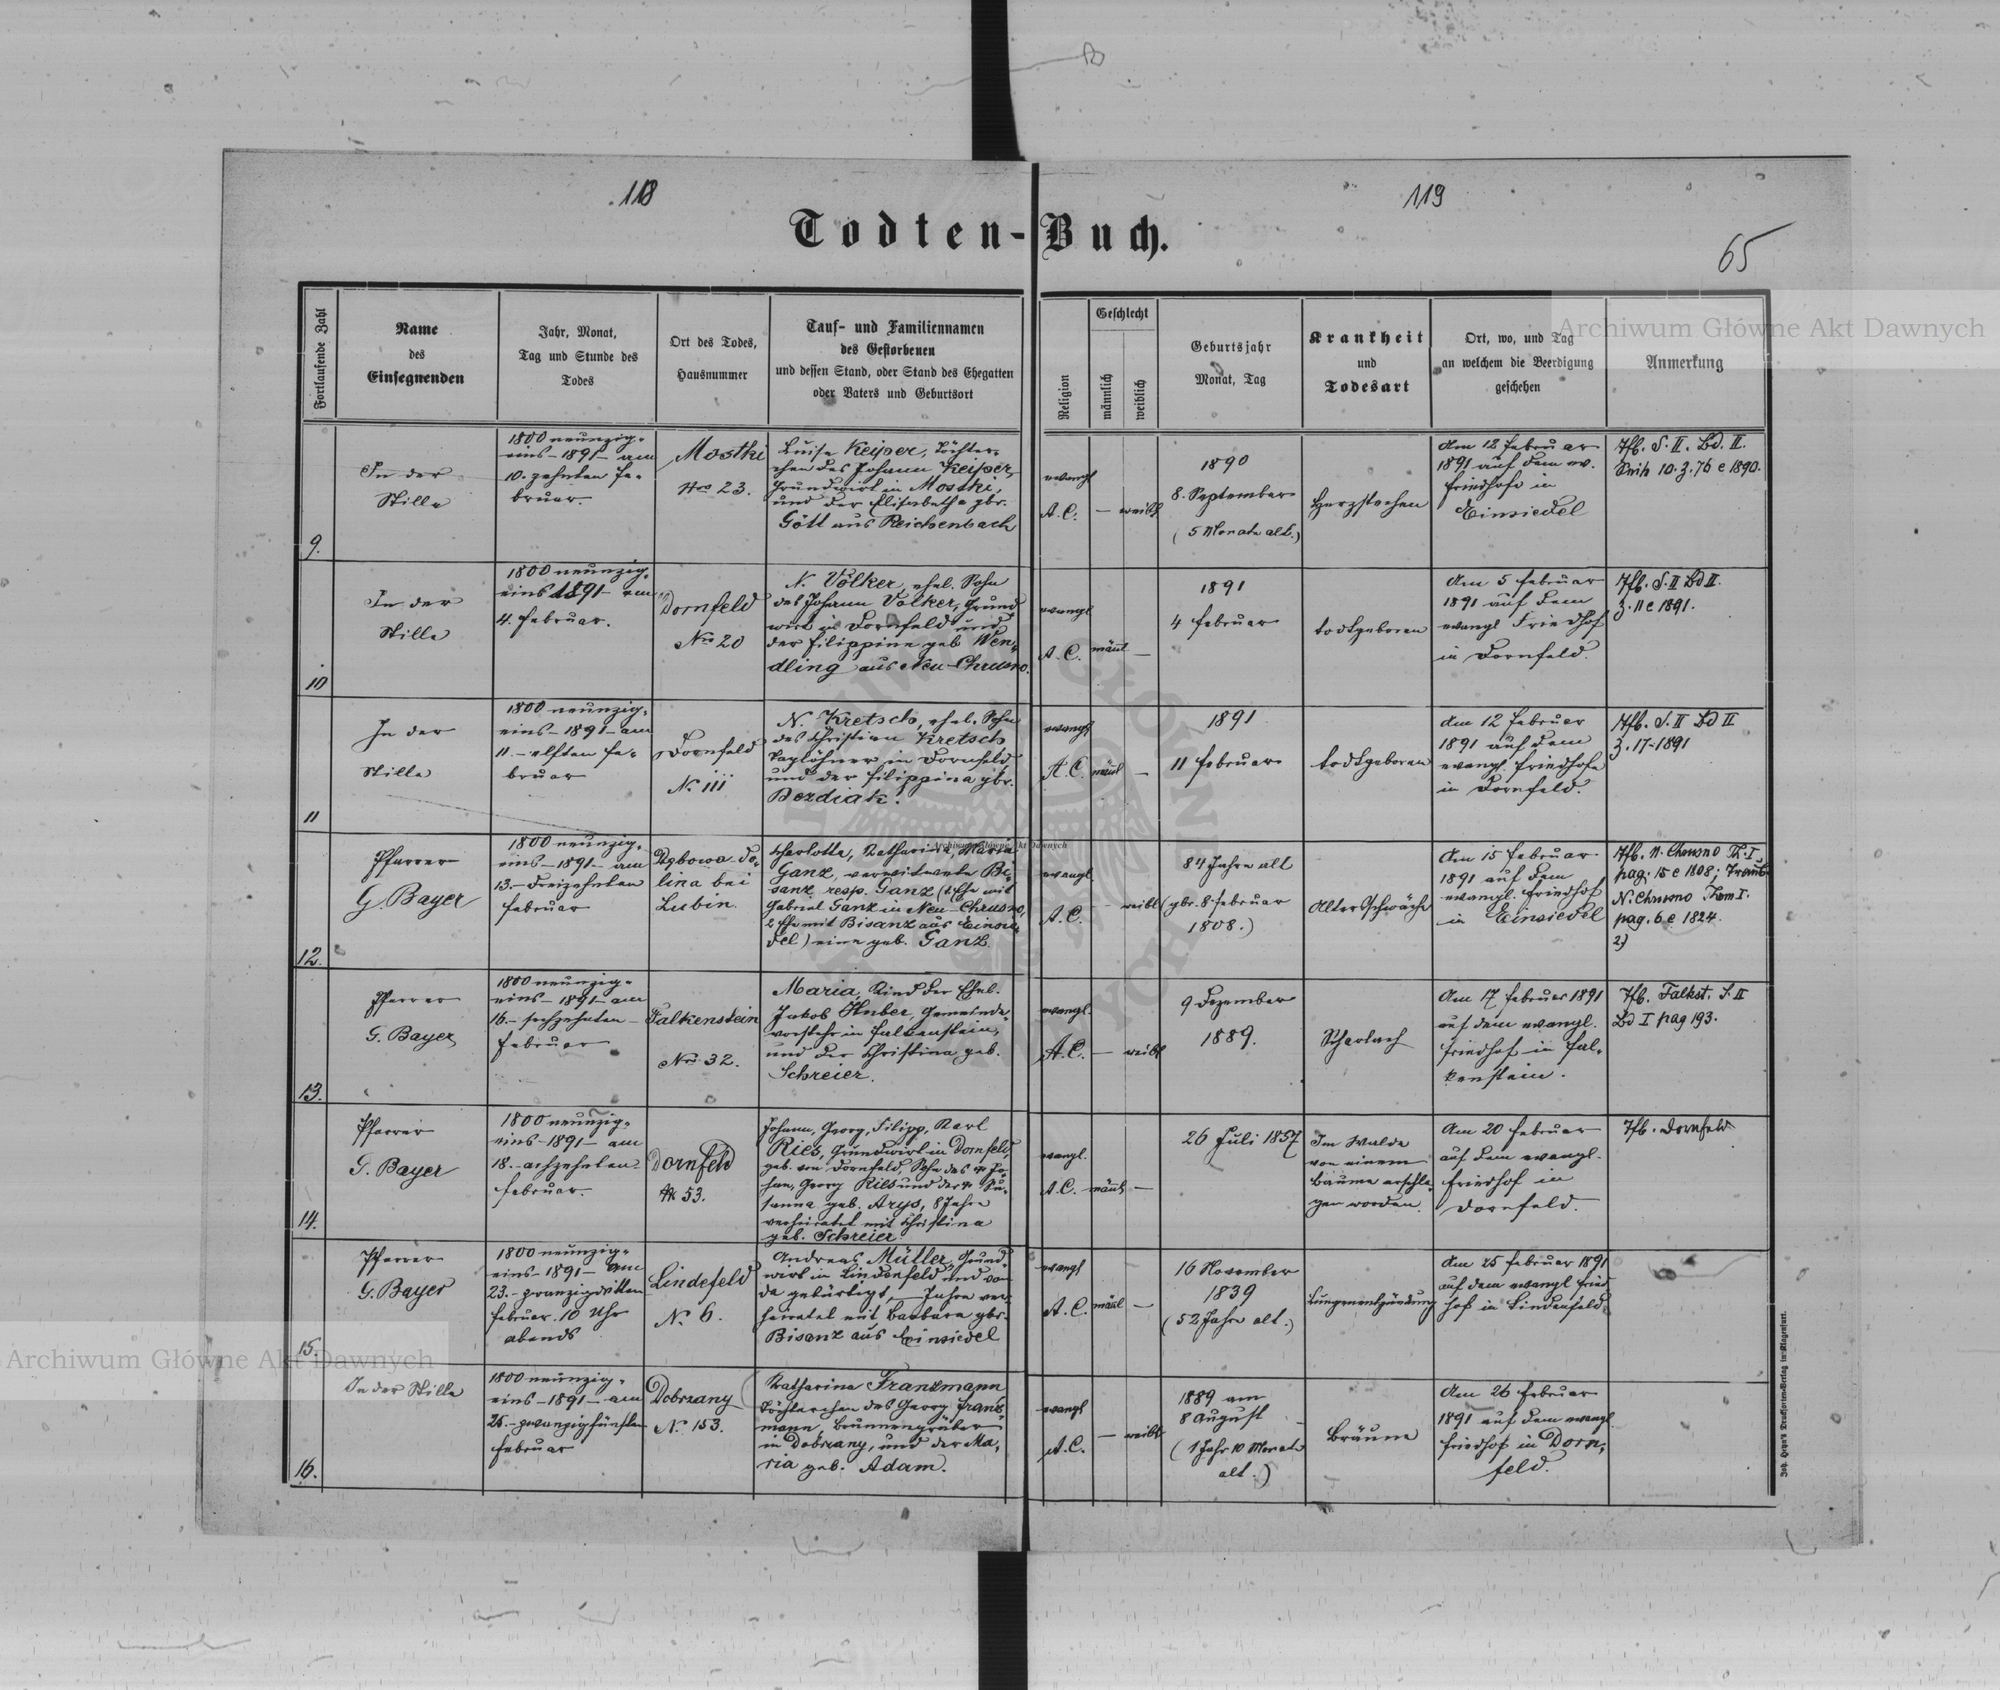 118
119
Todten-Buch.
65
Archiwum Główne Akt Dawnych
Fortlaufende Zahl
Name
des
Einsegnenden
Jahr, Monat,
Tag und Stunde des
Todes
Ort des Todes,
Hausnummer
Tauf- und Familiennamen
des Gestorbenen
und dessen Stand, oder Stand des Ehegatten
oder Vaters und Geburtsort
Religion
Geschlecht
männlich
weiblich
Geburtsjahr
Monat, Tag
Krankheit
und
Todesart
Ort, wo, und Tag
an welchem die Beerdigung
geschehen
Anmerkung
9.
In der
Stille
1800 neunzig-
eins - 1891 - am
10. zehnten Fe-
bruar.
Mostki
Nro 23.
Luise Keiper, Töchter-
chen des Johann Keiper,
Grundwirt in Mostki,
und der Elisabetha gbr.
Gött aus Reichenbach
evangl
A. C.
— weibl
1890
8. September
(5 Monate alt.)
Herzstechen
Am 12 Februar
1891 auf dem ev.
Friedhofe in
Einsiedel
Tfb. S. II. Bd. II.
10. Z. 76 e 1890.
10
In der
Stille
1800 neunzig-
eins 1891 - am
4. Februar.
Dornfeld
Nro 20
N. Völker, ehel. Sohn
des Johann Völker, Grund
wirt in Dornfeld und
der Filippine geb Wen-
dling aus Neu-Chrusno.
evangl
A. C.
mänl —
1891
4 Februar
todtgeboren
Am 5 Februar
1891 auf dem
evangl Friedhof
in Dornfeld.
Tfb. S. II Bd II.
Z. 11 e 1891.
11
In der
Stille
1800 neunzig-
eins - 1891 - am
11. - elften Fe-
bruar
Dornfeld
No 111
N. Kretsch, ehel. Sohn
des Christian Kretsch
Taglöhner in Dornfeld
und der Filippina gbr.
Bezdiak.
evangl
A. C.
mänl —
1891
11 Februar
todtgeboren
Am 12 Februar
1891 auf dem
evangl. Friedhofe
in Dornfeld.
Tfb. S. II Bd II
Z. 17-1891
12.
Pfarrer
G. Bayer
1800 neunzig-
eins - 1891 - am
13. - dreizehnten
Februar
Dębowa-Do-
lina bei
Lubin.
Charlotte, Katharina, Maria
Ganz, verwitwete Bi-
sanz resp. Ganz (1. Ehe mit
Gabriel Ganz in Neu-Chrusno,
2 Ehe mit Bisanz aus Einsie-
del) eine geb. Ganz.
Archiwum Główne Akt Dawnych
evangl.
A. C.
— weibl
84 Jahre alt
(gbr. 8. Februar
1808.)
Altersschwäche
Am 15 Februar
1891 auf dem
evangl. Friedhof
in Einsiedel
Tfb. N. Chrusno Th. I
pag. 15 e 1808; Traub.
N. Chrusno Thom I.
pag. 6 e 1824.
2)
13.
Pfarrer
G. Bayer
1800 neunzig-
eins - 1891 - am
16. - sechzehnten -
Februar
Falkenstein
Nro 32.
Maria, Kind der Ehel.
Jakob Huber, Gemeinde-
vorsteher in Falkenstein,
und der Christina geb.
Schreier.
evangl.
A. C.
— weibl
9 Dezember
1889.
Scharlach
Am 17 Februar 1891
auf dem evangl.
Friedhof in Fal-
kenstein.
Tfb. Falkst. S. II
Bd I pag 193.
14.
Pfarrer
G. Bayer
1800 neunzig-
eins - 1891 - am
18. - achzehnten
Februar.
Dornfeld
No 53.
Johann, Georg, Filipp, Karl
Ries, Grundwirt in Dornfeld,
geb. von Dornfeld, Sohn des Jo-
han, Georg Ries und der Su-
sanna geb. Arys, 8 Jahre
verheiratet mit Christina
geb. Schreier.
evangl.
A. C.
mänl —
26 Juli 1857
Im Walde
von einem
Baume erschla-
gen worden.
Am 20 Februar
auf dem evangl.
Friedhof in
Dornfeld.
Tfb. Dornfeld
15.
Pfarrer
G. Bayer
1800 neunzig-
eins - 1891 - am
23. - zwanzigdritten
Februar. 10 Uhr
abends
Lindefeld
No 6.
Andreas Müller, Grund-
wirt in Lindenfeld und von
da gebürtigt, — Jahre ver-
heiratet mit Barbara gbr.
Bisanz aus Einsiedel
evangl
A. C.
mänl —
16 November
1839
(52 Jahre alt.)
Lungenentzündung
Am 25 Februar 1891
auf dem evangl Fried
hof in Lindenfeld.
16.
In der Stille
1800 neunzig-
eins - 1891 - am
25. - zwanzigfünften
Februar
Dobrzany
No. 153.
Katharina Franzmann
Töchterchen des Georg Franz-
mann, Brunnengräber
in Dobrzany, und der Ma-
ria geb. Adam.
evangl
A. C.
— weibl
1889 am
8 August
(1 Jahr 10 Monate
alt.)
Bräune
Am 26 Februar
1891 auf dem evangl
Friedhof in Dorn-
feld.
Archiwum Główne Akt Dawnych